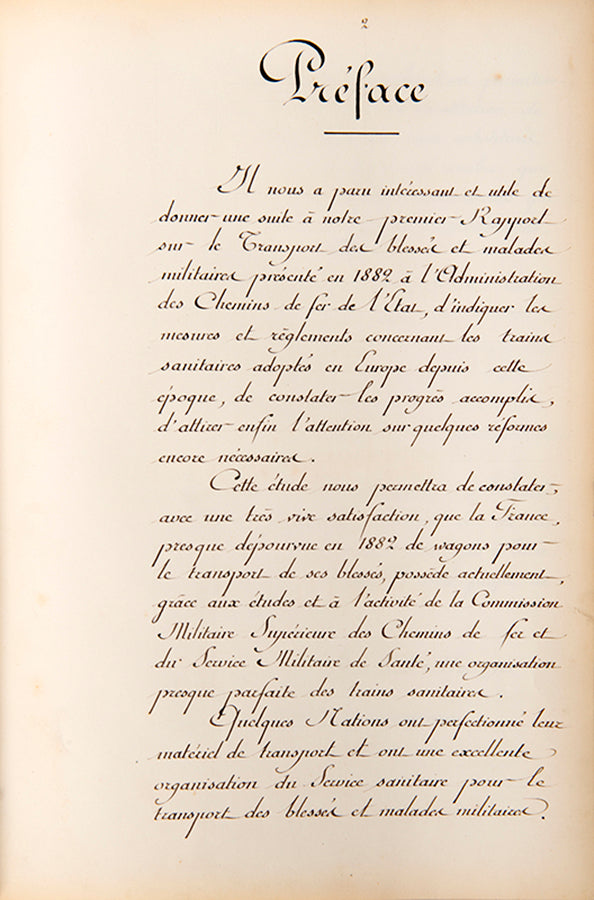 2
Préface
Il nous a paru intéressant et utile de
donner une suite à notre premier Rapport
sur le Transport des blessés et malades
militaires présenté en 1882 à l'Administration
des Chemins de fer de l'Etat, d'indiquer les
mesures et règlements concernant les trains
sanitaires adoptés en Europe depuis cette
époque, de constater les progrès accomplis,
d'attirer enfin l'attention sur quelques réformes
encore nécessaires.
Cette étude nous permettra de constater,
avec une très vive satisfaction, que la France,
presque dépourvue en 1882 de wagons pour
le transport de ses blessés, possède actuellement,
grâce aux études et à l'activité de la Commission
Militaire Supérieure des Chemins de fer et
du Service Militaire de Santé, une organisation
presque parfaite des trains sanitaires.
Quelques Nations ont perfectionné leur
matériel de transport et ont une excellente
organisation du Service sanitaire pour le
transport des blessés et malades militaires.